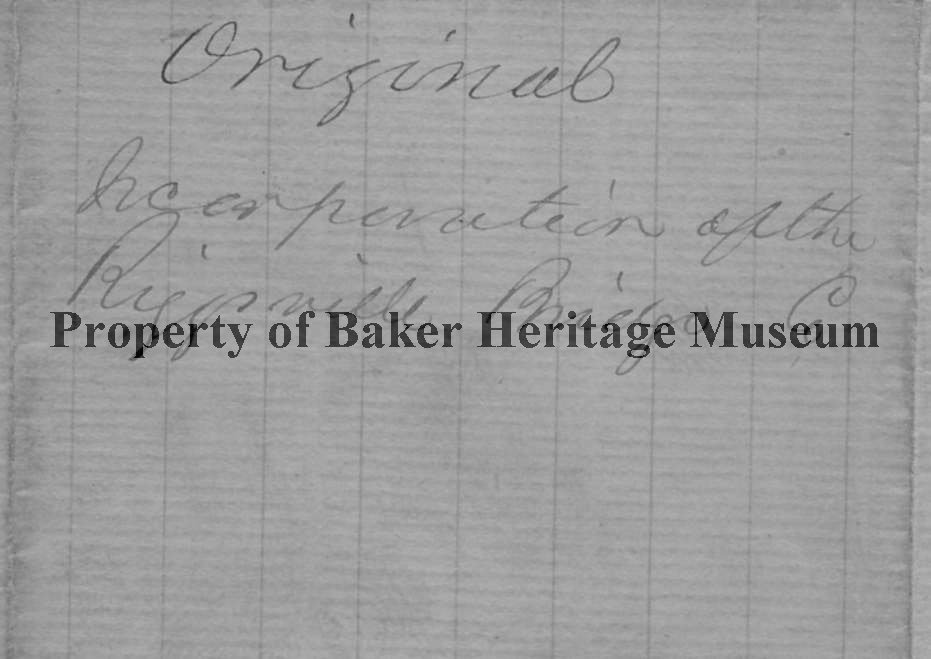 Original
Incorporation of the
Riggsville Bridge Co
Property of Baker Heritage Museum